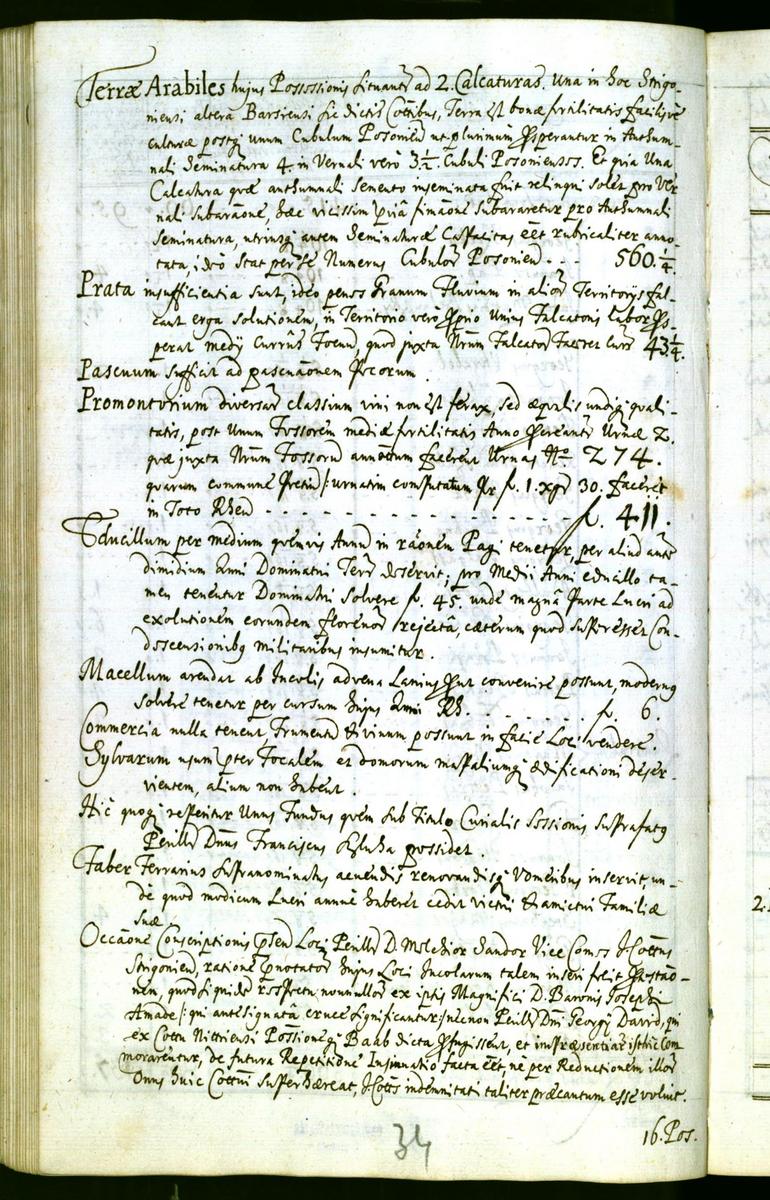 Terræ Arabiles hujus Possessionis situantur ad 2. Calcaturas. Una in hoc Strigo-
niensi altera Barsiensi sic dictis Cottibus, Terra est bonæ fertilitatis facilisque
culturæ postq unum Cubulum Posonien ut plurimum Sperantur in Authum-
nali Seminatura 4. in Vernali verò 3½ Cubuli Posonienses. Et quia Una
Calcatura quæ authumnali semento inseminata fuit relinqui solet pro Ver
nali subarãone, hæc vicissim pviâ fimãone subararetur pro Authumnali
seminatura, utriusq autem Seminaturæ Capacitas eet rubricaliter anno-
tata, ideò stat per se Numerus Cubulor Posonien - - - 560.¼.
Prata insufficientia sunt, ideo penes Granum Fluvium in alior Territorijs fal-
cant erga solutionem, in Territorio verò Pprio Unius Falcatoris labor Ps-
perat medij Currûs Foenu, quod juxta Nrum Falcator Faceret Curr 43¼.
Pascuum sufficit ad pascuãonem Pecorum.
Promontorium diversar classium vini non est ferax, sed æqualis undiq quali-
tatis, post Unum Fossorem mediæ fertilitatis Anno Pcreantur Urnæ 2.
quæ juxta Nrum Fossoru annotum facerent Urnas No 274.
quarum commune Pretiu /: urnatim computatum pr f. 1. xgr 30. faceret
in Toto Rhen - - - - - - - - - - - - - - - f. 411.
Educillum per medium quemvis Annu in rãonem Pagi tenetur, per aliud aute
dimidium Anni Dominatui Terr deservit; pro Medij Anni educillo ta-
men tenentur Dominatui Solvere f. 45. unde magnâ Parte Lucri ad
exolutionem eorundem florenor rejectâ, cæterum quod superesset Con-
descensionibq militaribus insumitur.
Macellum arendat ab Incolis advena Lanius prout convenire possunt, modernq
solvere tenetur per cursum hujus Anni Rh. . . . . . . f. 6.
Commercia nulla tenent, Frumentu & vinum possunt in facie Loci vendere.
Sylvarum usum pter Focalem et domorum mapaliumq ædificationi deser-
vientem, alium non habent.
Hic quoq reperitur Unus Fundus quem sub titulo Curialis Sessionis suprafatq
Perillr Dnus Franciscus possidet.
Faber Ferrarius supranominatus acuendis renovandisq Vomeribus inservit, un-
de quod modicum Lucri annuè haberet cedit victui & amictui Familiæ
suæ
Occãone Conscriptionis psen Loci Perillr D. Melchior Sandor Vice Comes I. Cottus
Strigonien, ratione pnotator hujus Loci Incolarum talem inseri fecit Ptestão-
nem, quod siquidem respectu nonnullor ex iptis Magnifici D. Baronis Josephi
Amade /: qui antesignatâ cruce significantur :/ necnon Perillr Dni Georgij David, qui
ex Cottu Nittriensi Possioneq Baab dicta Pfugissent, et inpræsentiar isthic Com
morarentur, de futura Repetitione Insinuatio facta eet, ne per Reductionem illor
Onus huic Cottui superhæreat, I. Cottus indemnitati taliter præcautum esse voluit.
16. Pos.
34
2.